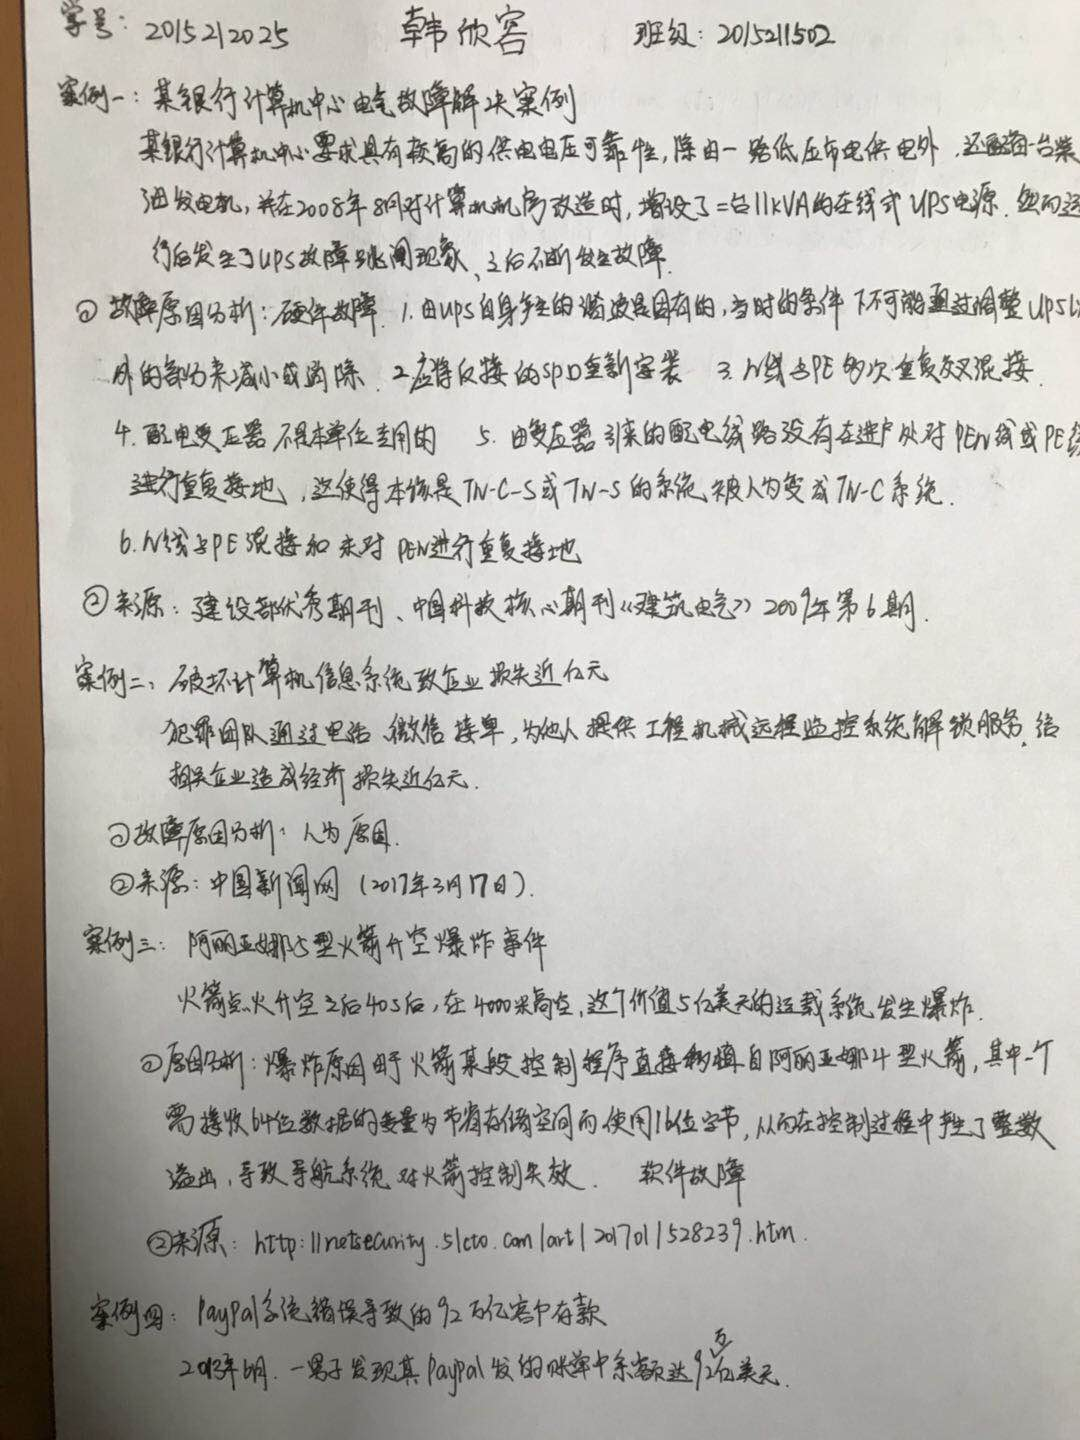 学号: 2015212025 韩欣容 班级: 2015211502
案例一: 某银行计算机中心电气故障解决案例
某银行计算机中心要求具有较高的供电电压可靠性, 除由一路低压市电供电外, 还配备一台柴
油发电机, 并在2008年8月对计算机机房改造时, 增设了二台11kVA的在线式UPS电源. 然而运
行后发生了UPS故障跳闸现象、之后不断发生故障.
① 故障原因分析: 硬件故障. 1. 由UPS自身产生的谐波是固有的, 当时的条件下不可能通过调整UPS以
外的部分来减小或消除. 2 应将反接的SPD重新安装 3. N线与PE多次重复交叉混接.
4. 配电变压器不是本单位专用的 5. 由变压器引来的配电线路没有在进户处对PEN线或PE线
进行重复接地, 这使得本该是TN-C-S或TN-S的系统被人为变成TN-C系统.
6. N线与PE混接和未对PEN进行重复接地
② 来源: 建设部优秀期刊、中国科技核心期刊《建筑电气》2009年第6期.
案例二、破坏计算机信息系统致企业损失近亿元
犯罪团队通过电话、微信接单, 为他人提供工程机械远程监控系统解锁服务, 给
相关企业造成经济损失近亿元.
① 故障原因分析: 人为原因.
② 来源: 中国新闻网 (2017年3月17日).
案例三: 阿丽亚娜5型火箭升空爆炸事件
火箭点火升空之后40s后, 在4000米高空, 这个价值5亿美元的运载系统发生爆炸.
① 原因分析: 爆炸原因由于火箭某段控制程序直接移植自阿丽亚娜4型火箭, 其中一个
需接收64位数据的变量为节省存储空间而使用16位字节, 从而在控制过程中产生了整数
溢出, 导致导航系统对火箭控制失效. 软件故障
② 来源: http://netsecurity.51cto.com/art/201701/528239.htm.
案例四: PayPal系统错误导致的92万亿客户存款
2013年6月. 一男子发现其PayPal发的账单中余额达92万亿美元.